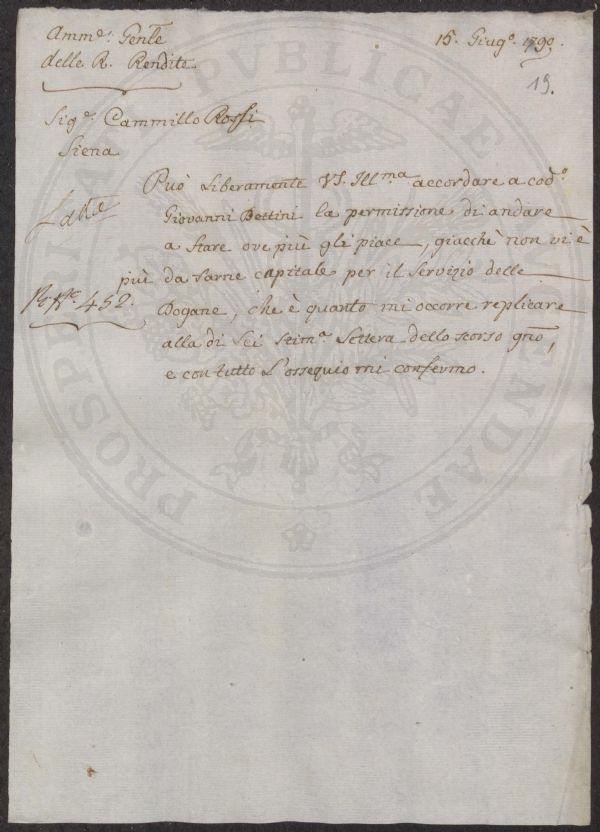 Amm.e Gen̄le
15. Giug.o 1790.
delle R. Rendite
19.
Sig.r Cammillo Rossi
Siena
Può liberamente VS. Ill.ma accordare a cod.o
Giovanni Bettini la permissione di andare
a stare ove più gli piace, giacchè non vi è
più da farne capitale per il servizio delle
452.
Dogane, che è quanto mi occorre replicare
alla di Lei stim.a Lettera dello scorso gno,
e con tutto l'ossequio mi confermo.
PROSPERITATI PUBLICAE AUGENDAE